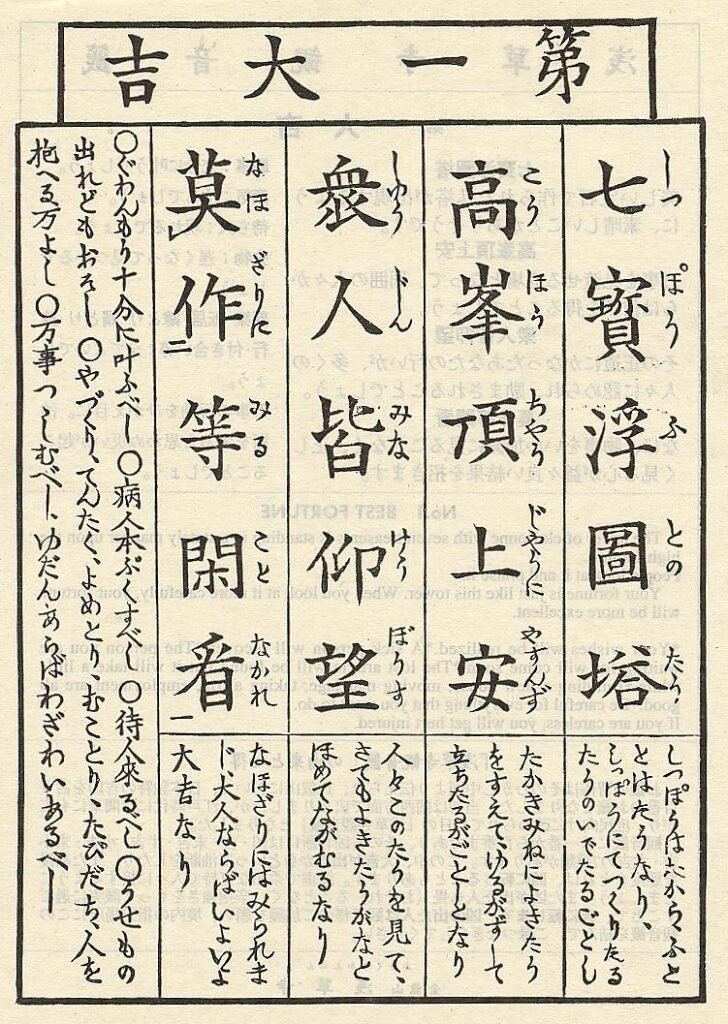 第一大吉
しつ ぽう ふ との たう
七寶浮圖塔
しつぽうはたからふと
とはたうなり、
しつぽうにてつくりたる
たうのいでたるごとし
こう ほう ちやう じやうに やすんず
高峯頂上安
たかきみねによきたう
をすえて、ゆるがずして
立ちたるがごとしとなり
しゆう じん みな けう ぼうす
衆人皆仰望
人々とのたうを見て、
さてもよきたうかなと
ほめ、ながむるなり
なほ ざりに みる こと なかれ
莫レ作二等閑看一
なほざりにはみられま
じ、大人ならばいよいよ
大吉なり
〇ぐわんもう十分に叶ふべし 〇病人本ぷくすべし 〇待人來るべし 〇うせもの
出れどもおそし 〇やづくり、てんたく、よめとり、むことり、たびだち、人を
抱へる万よし 〇万事つつしむべし、ゆだんあらばわざわいあるべし